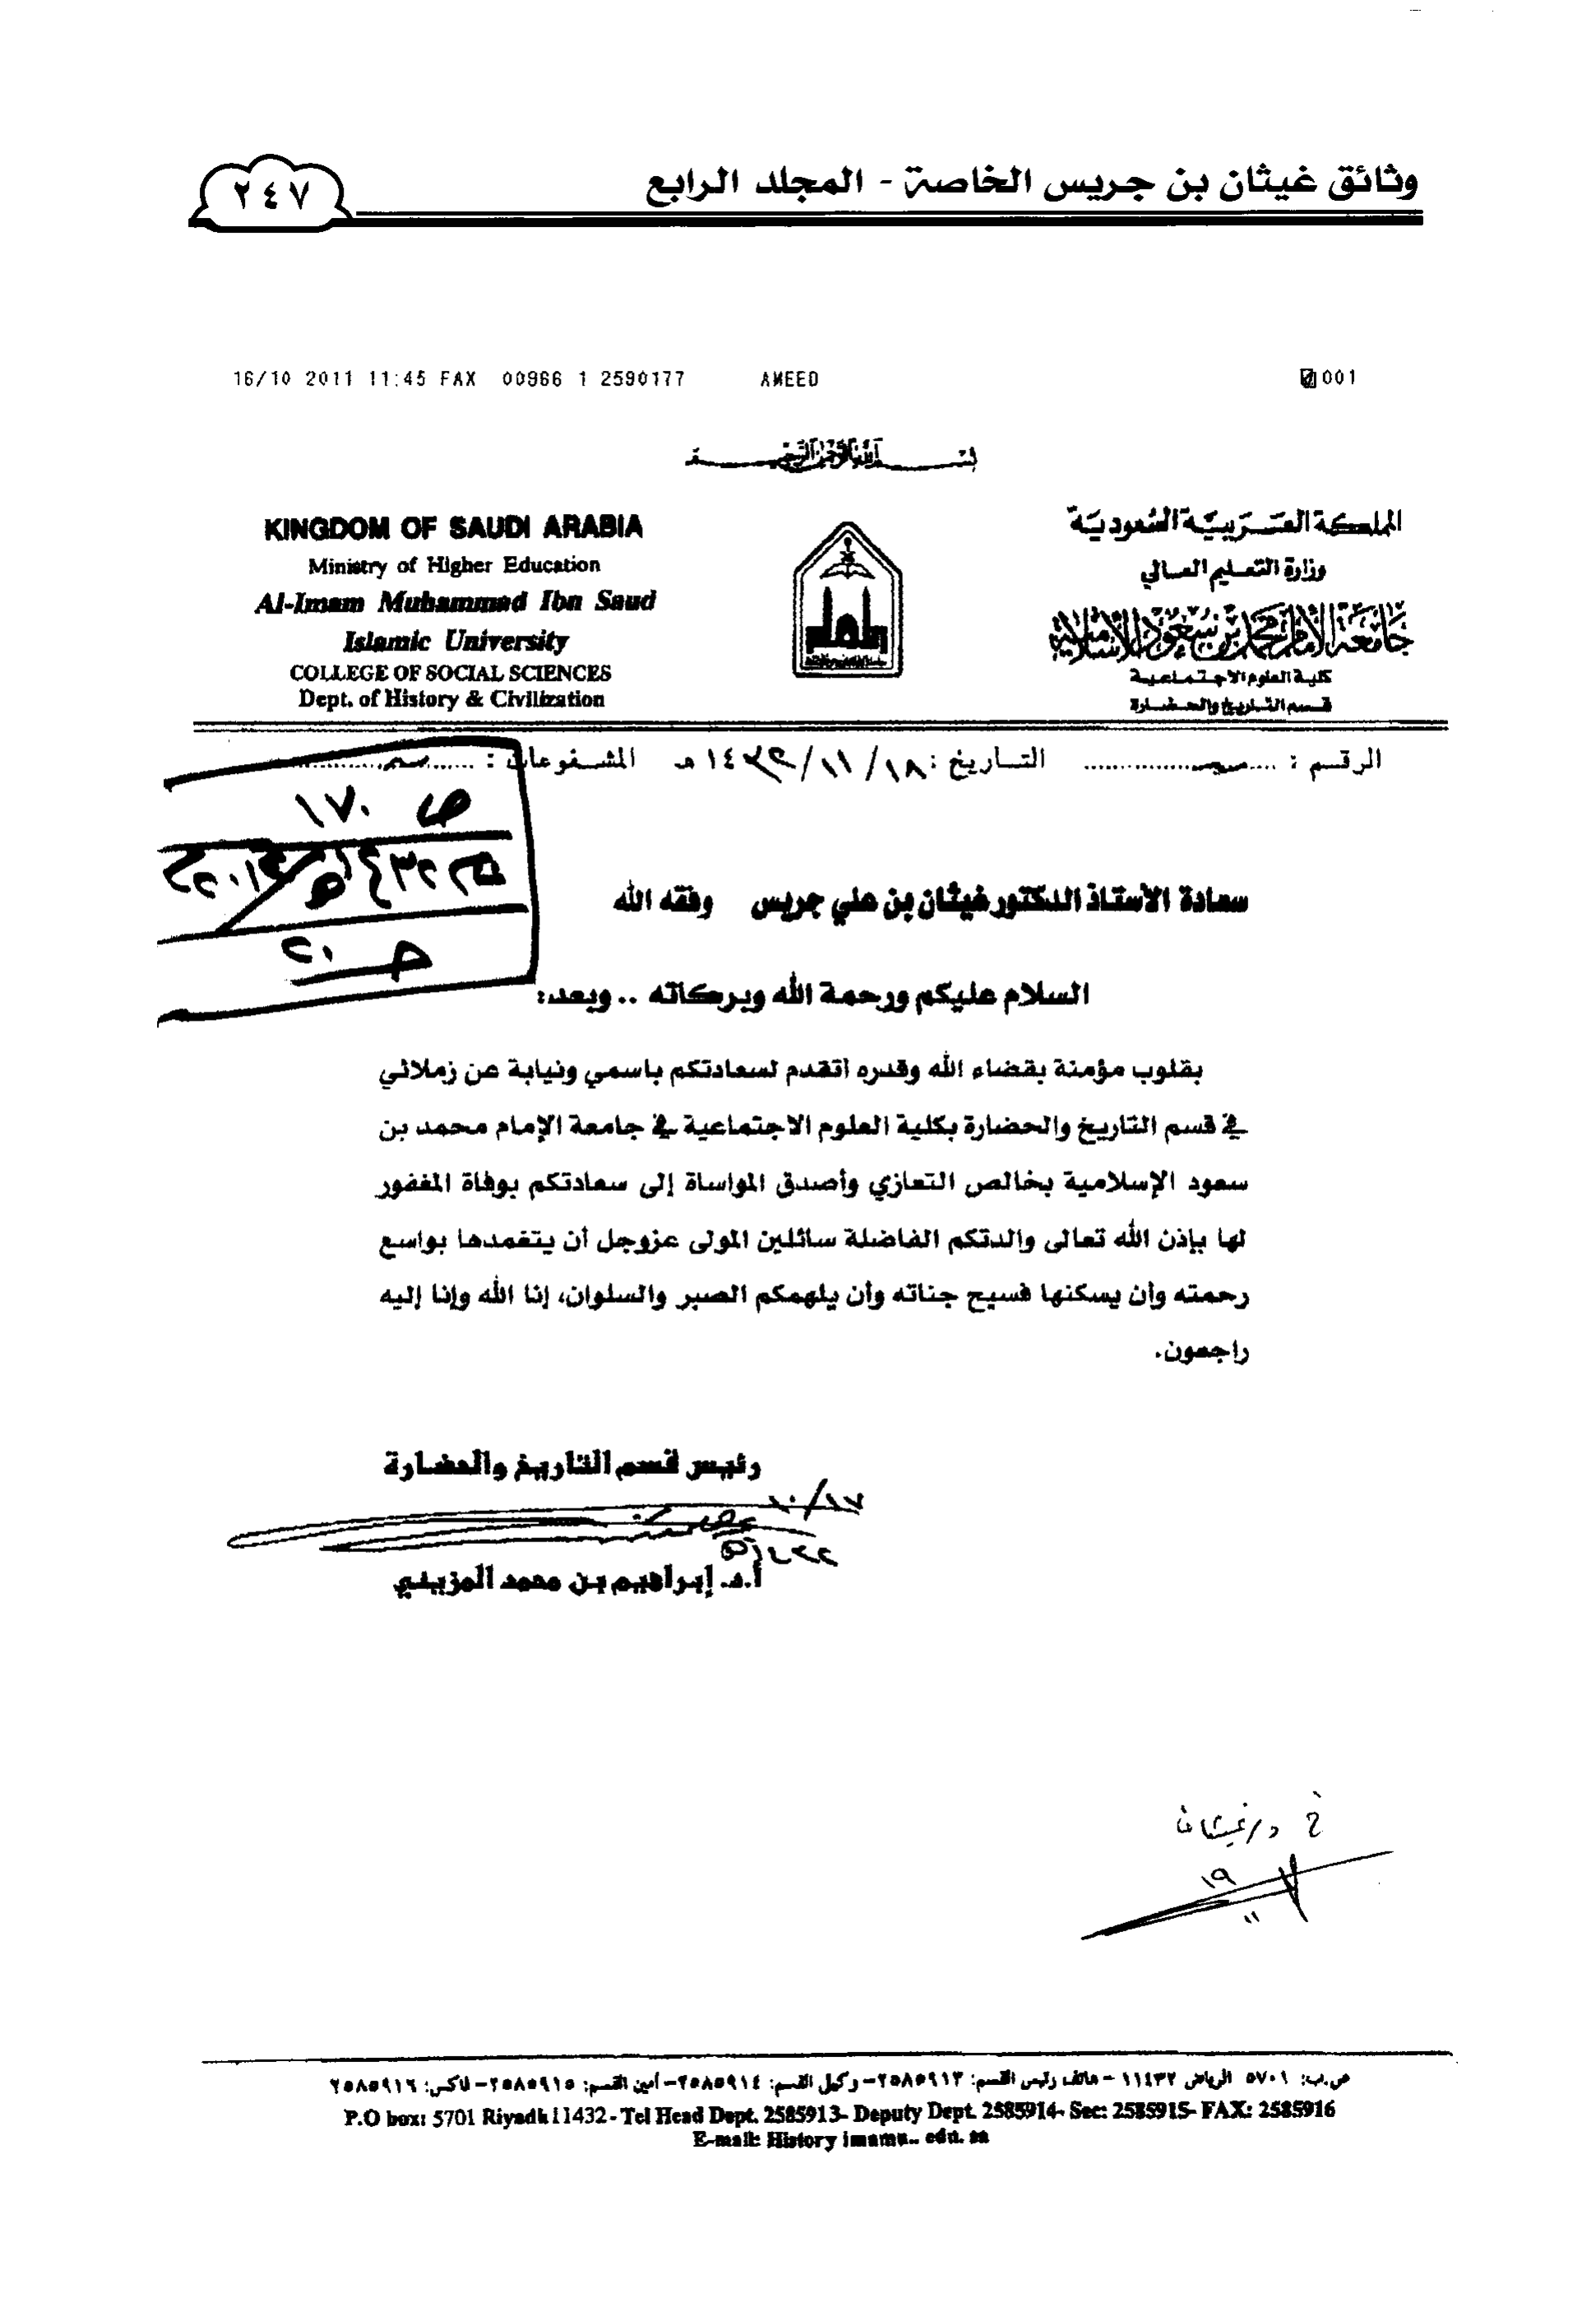 وثائق غيثان بن جريس الخاصة - المجلد الرابع
٢٤٧
16/10 2011 11:45 FAX 00966 1 2590177 AMEED 001
بسم الله الرحمن الرحيم
KINGDOM OF SAUDI ARABIA
Ministry of Higher Education
Al-Imam Muhammad Ibn Saud
Islamic University
COLLEGE OF SOCIAL SCIENCES
Dept. of History & Civilization
المملكة العربية السعودية
وزارة التعليم العالي
جامعة الإمام محمد بن سعود الإسلامية
كلية العلوم الاجتماعية
قسم التاريخ والحضارة
الرقم : التاريخ : ١٨/١١/١٤٣٢هـ المشفوعات :
ص ١٧٠
سعادة الأستاذ الدكتور غيثان بن علي جريس وفقه الله
السلام عليكم ورحمة الله وبركاته .. وبعد:
بقلوب مؤمنة بقضاء الله وقدره اتقدم لسعادتكم باسمي ونيابة عن زملائي
في قسم التاريخ والحضارة بكلية العلوم الاجتماعية في جامعة الإمام محمد بن
سعود الإسلامية بخالص التعازي وأصدق المواساة إلى سعادتكم بوفاة المغفور
لها بإذن الله تعالى والدتكم الفاضلة سائلين المولى عزوجل أن يتغمدها بواسع
رحمته وأن يسكنها فسيح جناته وأن يلهمكم الصبر والسلوان، إنا الله وإنا إليه
راجعون.
رئيس قسم التاريخ والحضارة
أ.د. إبراهيم بن محمد المزيني
د/غيثان
١٩
١١
ص.ب: ٥٧٠١ الرياض ١١٤٣٢ - هاتف رئيس القسم: ٢٥٨٥٩١٣- وكيل القسم: ٢٥٨٥٩١٤- أمين القسم: ٢٥٨٥٩١٥- فاكس: ٢٥٨٥٩١٦
P.O box: 5701 Riyadh 11432 - Tel Head Dept. 2585913- Deputy Dept. 2585914- Sec: 2585915- FAX: 2585916
E-mail: History imamu.. edu. sa